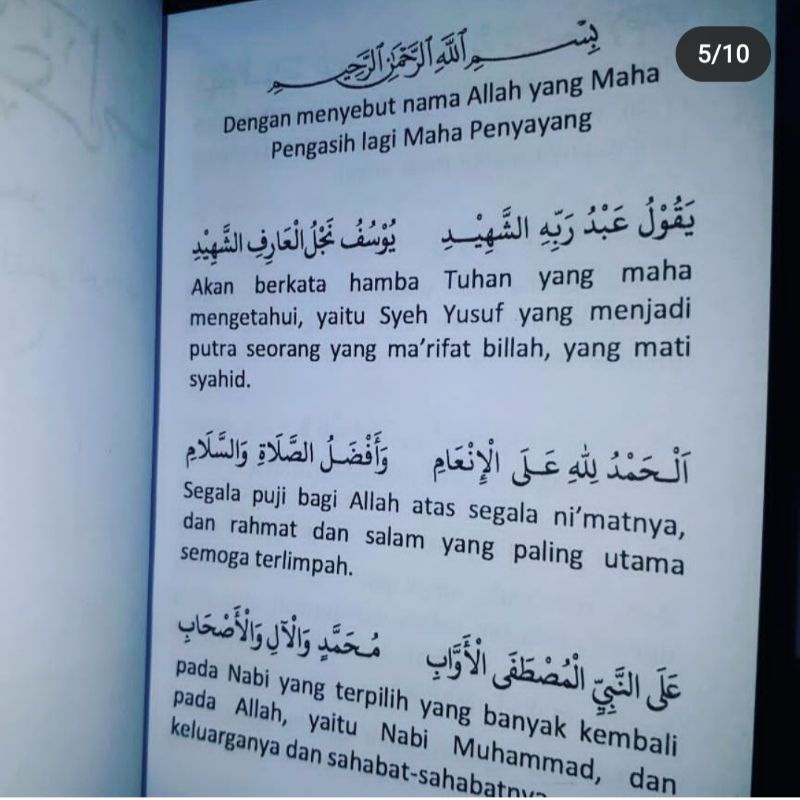 5/10
بِسْمِ اللَّهِ الرَّحْمَٰنِ الرَّحِيمِ
Dengan menyebut nama Allah yang Maha
Pengasih lagi Maha Penyayang
يَقُوْلُ عَبْدُ رَبِّهِ الشَّهِيْدِ يُوْسُفُ نَجْلُ الْعَارِفِ الشَّهِيْدِ
Akan berkata hamba Tuhan yang maha
mengetahui, yaitu Syeh Yusuf yang menjadi
putra seorang yang ma'rifat billah, yang mati
syahid.
اَلْحَمْدُ لِلّٰهِ عَلَى الْإِنْعَامِ وَأَفْضَلُ الصَّلَاةِ وَالسَّلَامِ
Segala puji bagi Allah atas segala ni'matnya,
dan rahmat dan salam yang paling utama
semoga terlimpah.
عَلَى النَّبِيِّ الْمُصْطَفَى الْأَوَّابِ مُحَمَّدٍ وَالْآلِ وَالْأَصْحَابِ
pada Nabi yang terpilih yang banyak kembali
pada Allah, yaitu Nabi Muhammad, dan
keluarganya dan sahabat-sahabatnya